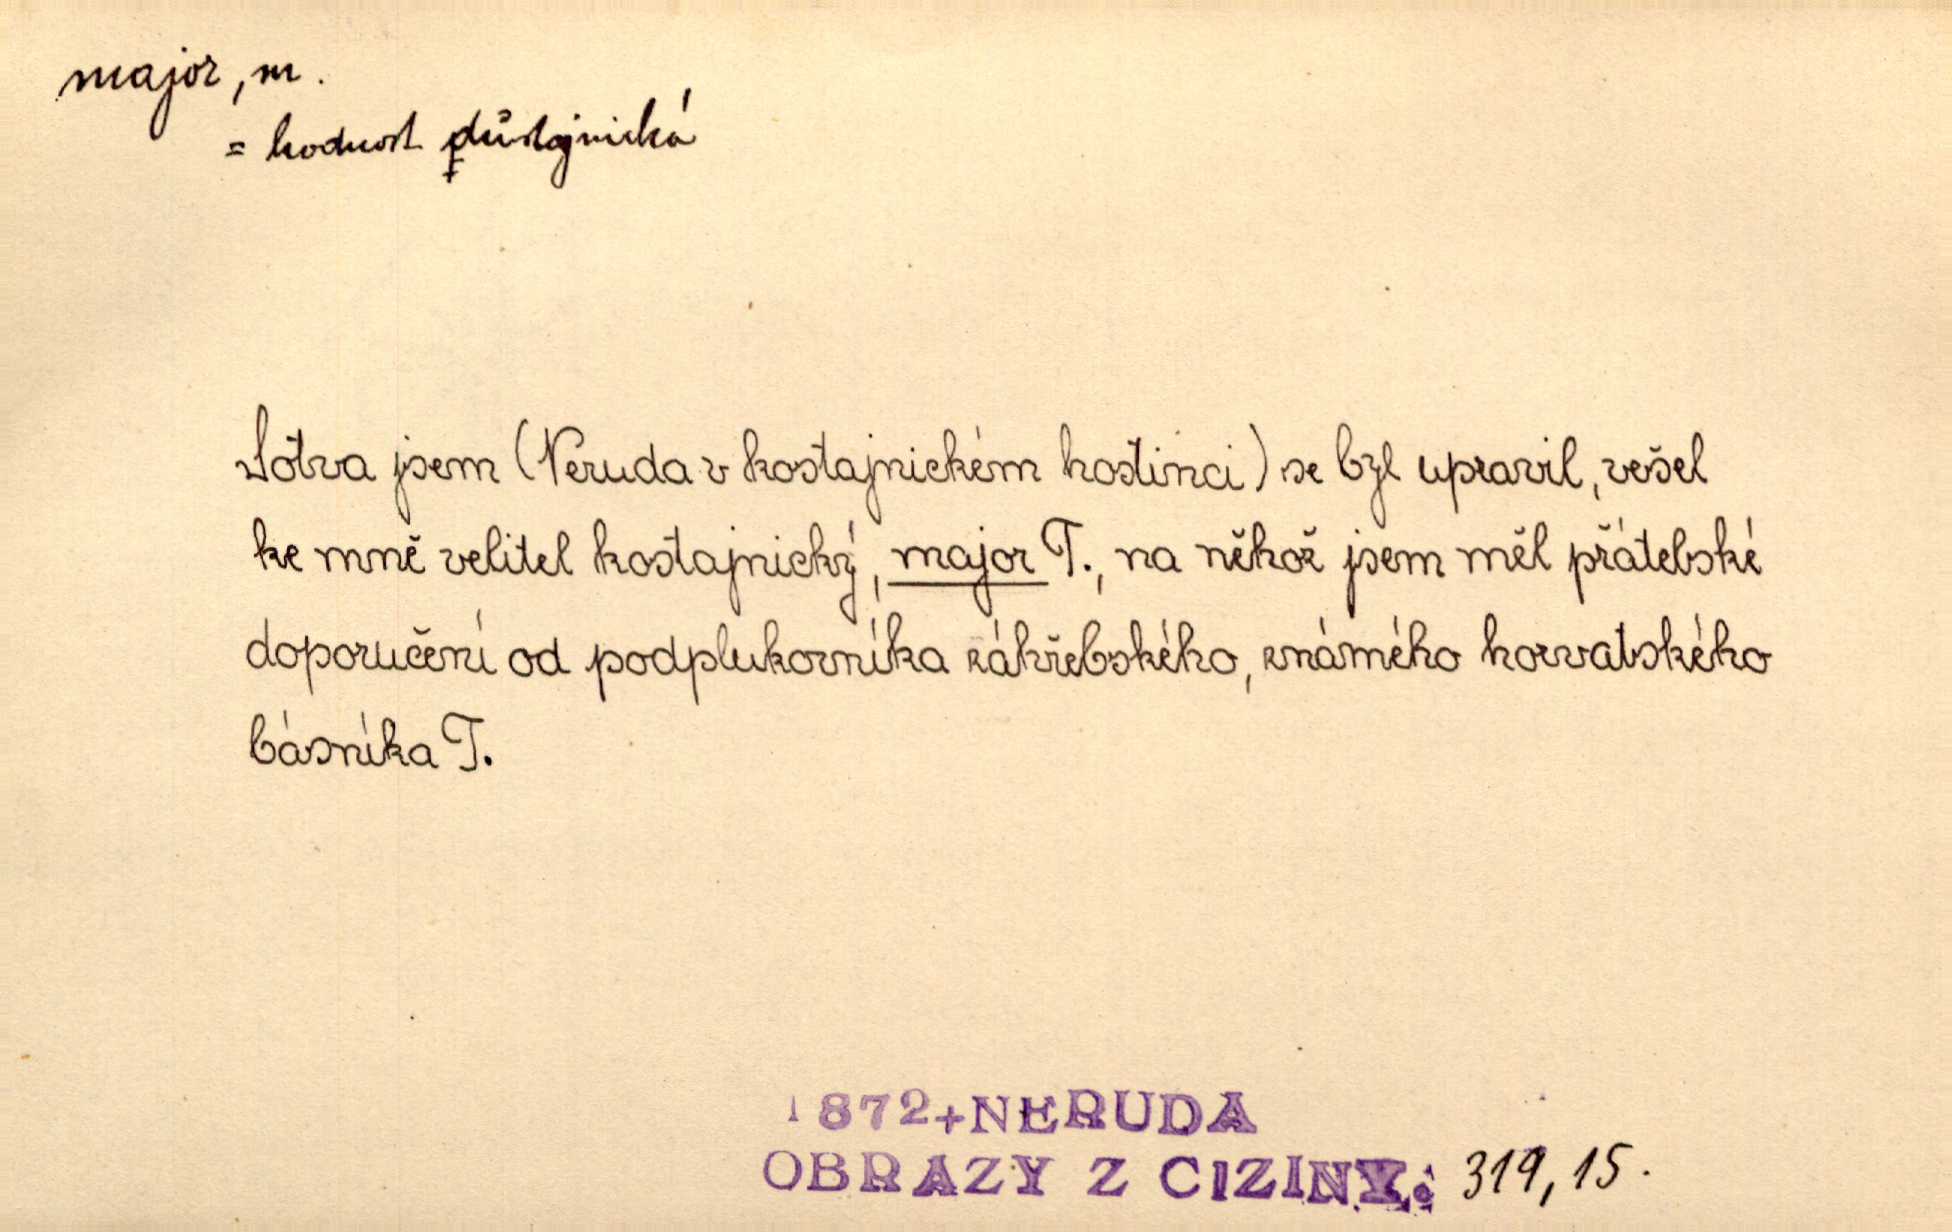 major, m.
= hodnost důstojnická
Sotva jsem (Neruda v kostajnickém hostinci) se byl upravil, vešel
ke mně velitel kostajnický, major T., na něhož jsem měl přátelské
doporučení od podplukovníka záhřebského, známého horvatského
básníka T.
1872+NERUDA
OBRAZY Z CIZINY. 319, 15.